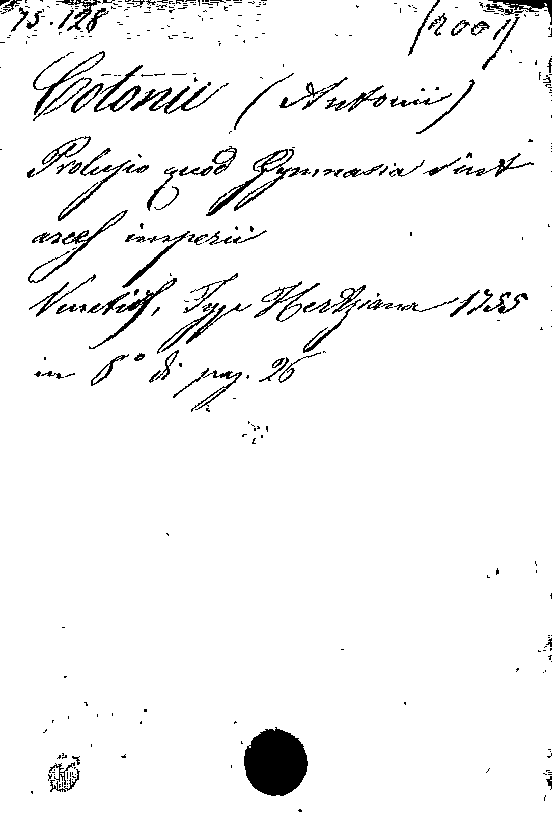 75.128 (2001)
Cotonii (Antonii)
Prolusio quod Gymnasia sint
arces imperii
Venetiis, Typ. Hertziana 1755
in 8° di pag. 26